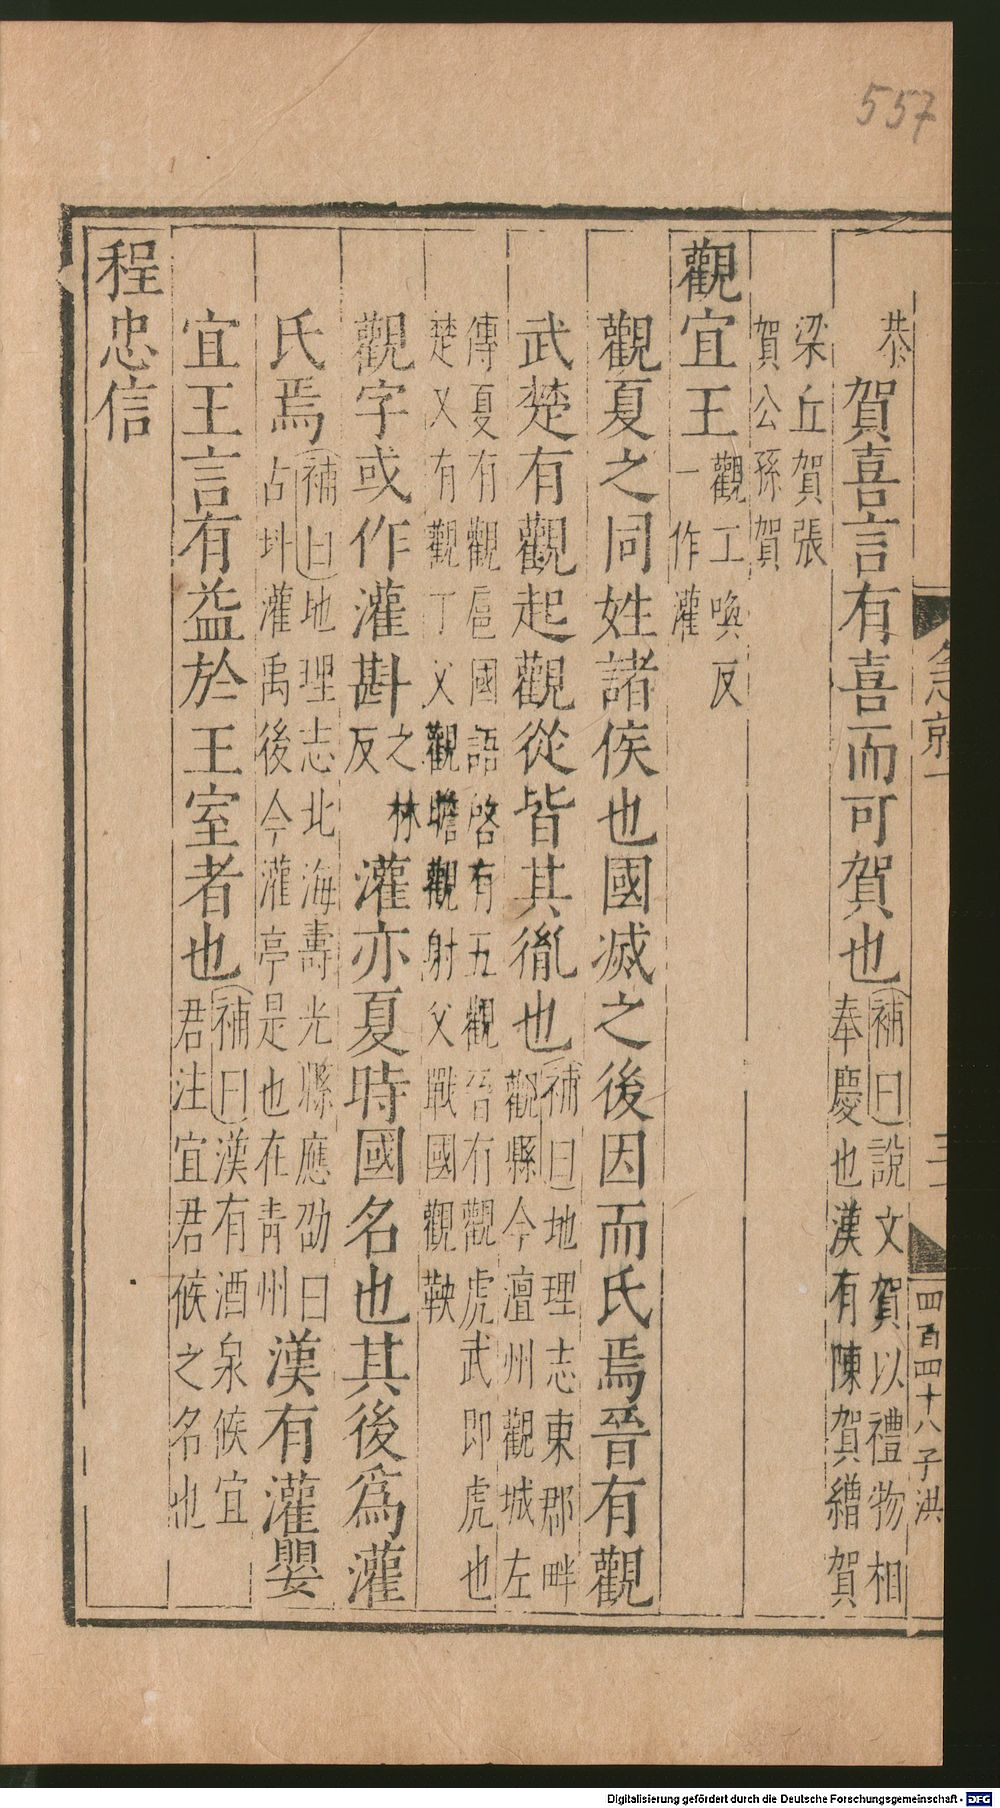 557
恭
賀喜言有喜而可賀也補曰說文賀以禮物相
奉慶也漢有陳賀繒賀
梁丘賀張
賀公孫賀
觀宜王觀工喚反
一作灌
觀夏之同姓諸侯也國滅之後因而氏焉晉有觀
武楚有觀起觀從皆其胤也補曰地理志東郡畔
觀縣今澶州觀城左
傳夏有觀扈國語啓有五觀晉有觀虎武即虎也
楚又有觀丁父觀瞻觀射父戰國觀鞅
觀字或作灌斟之林
反灌亦夏時國名也其後爲灌
氏焉補曰地理志北海壽光縣應劭曰
古斟灌禹後今灌亭是也在青州漢有灌嬰
宜王言有益於王室者也補曰漢有酒泉候宜
君注宜君候之名也
程忠信
急就一
四百四十八子洪
Digitalisierung gefördert durch die Deutsche Forschungsgemeinschaft - DFG